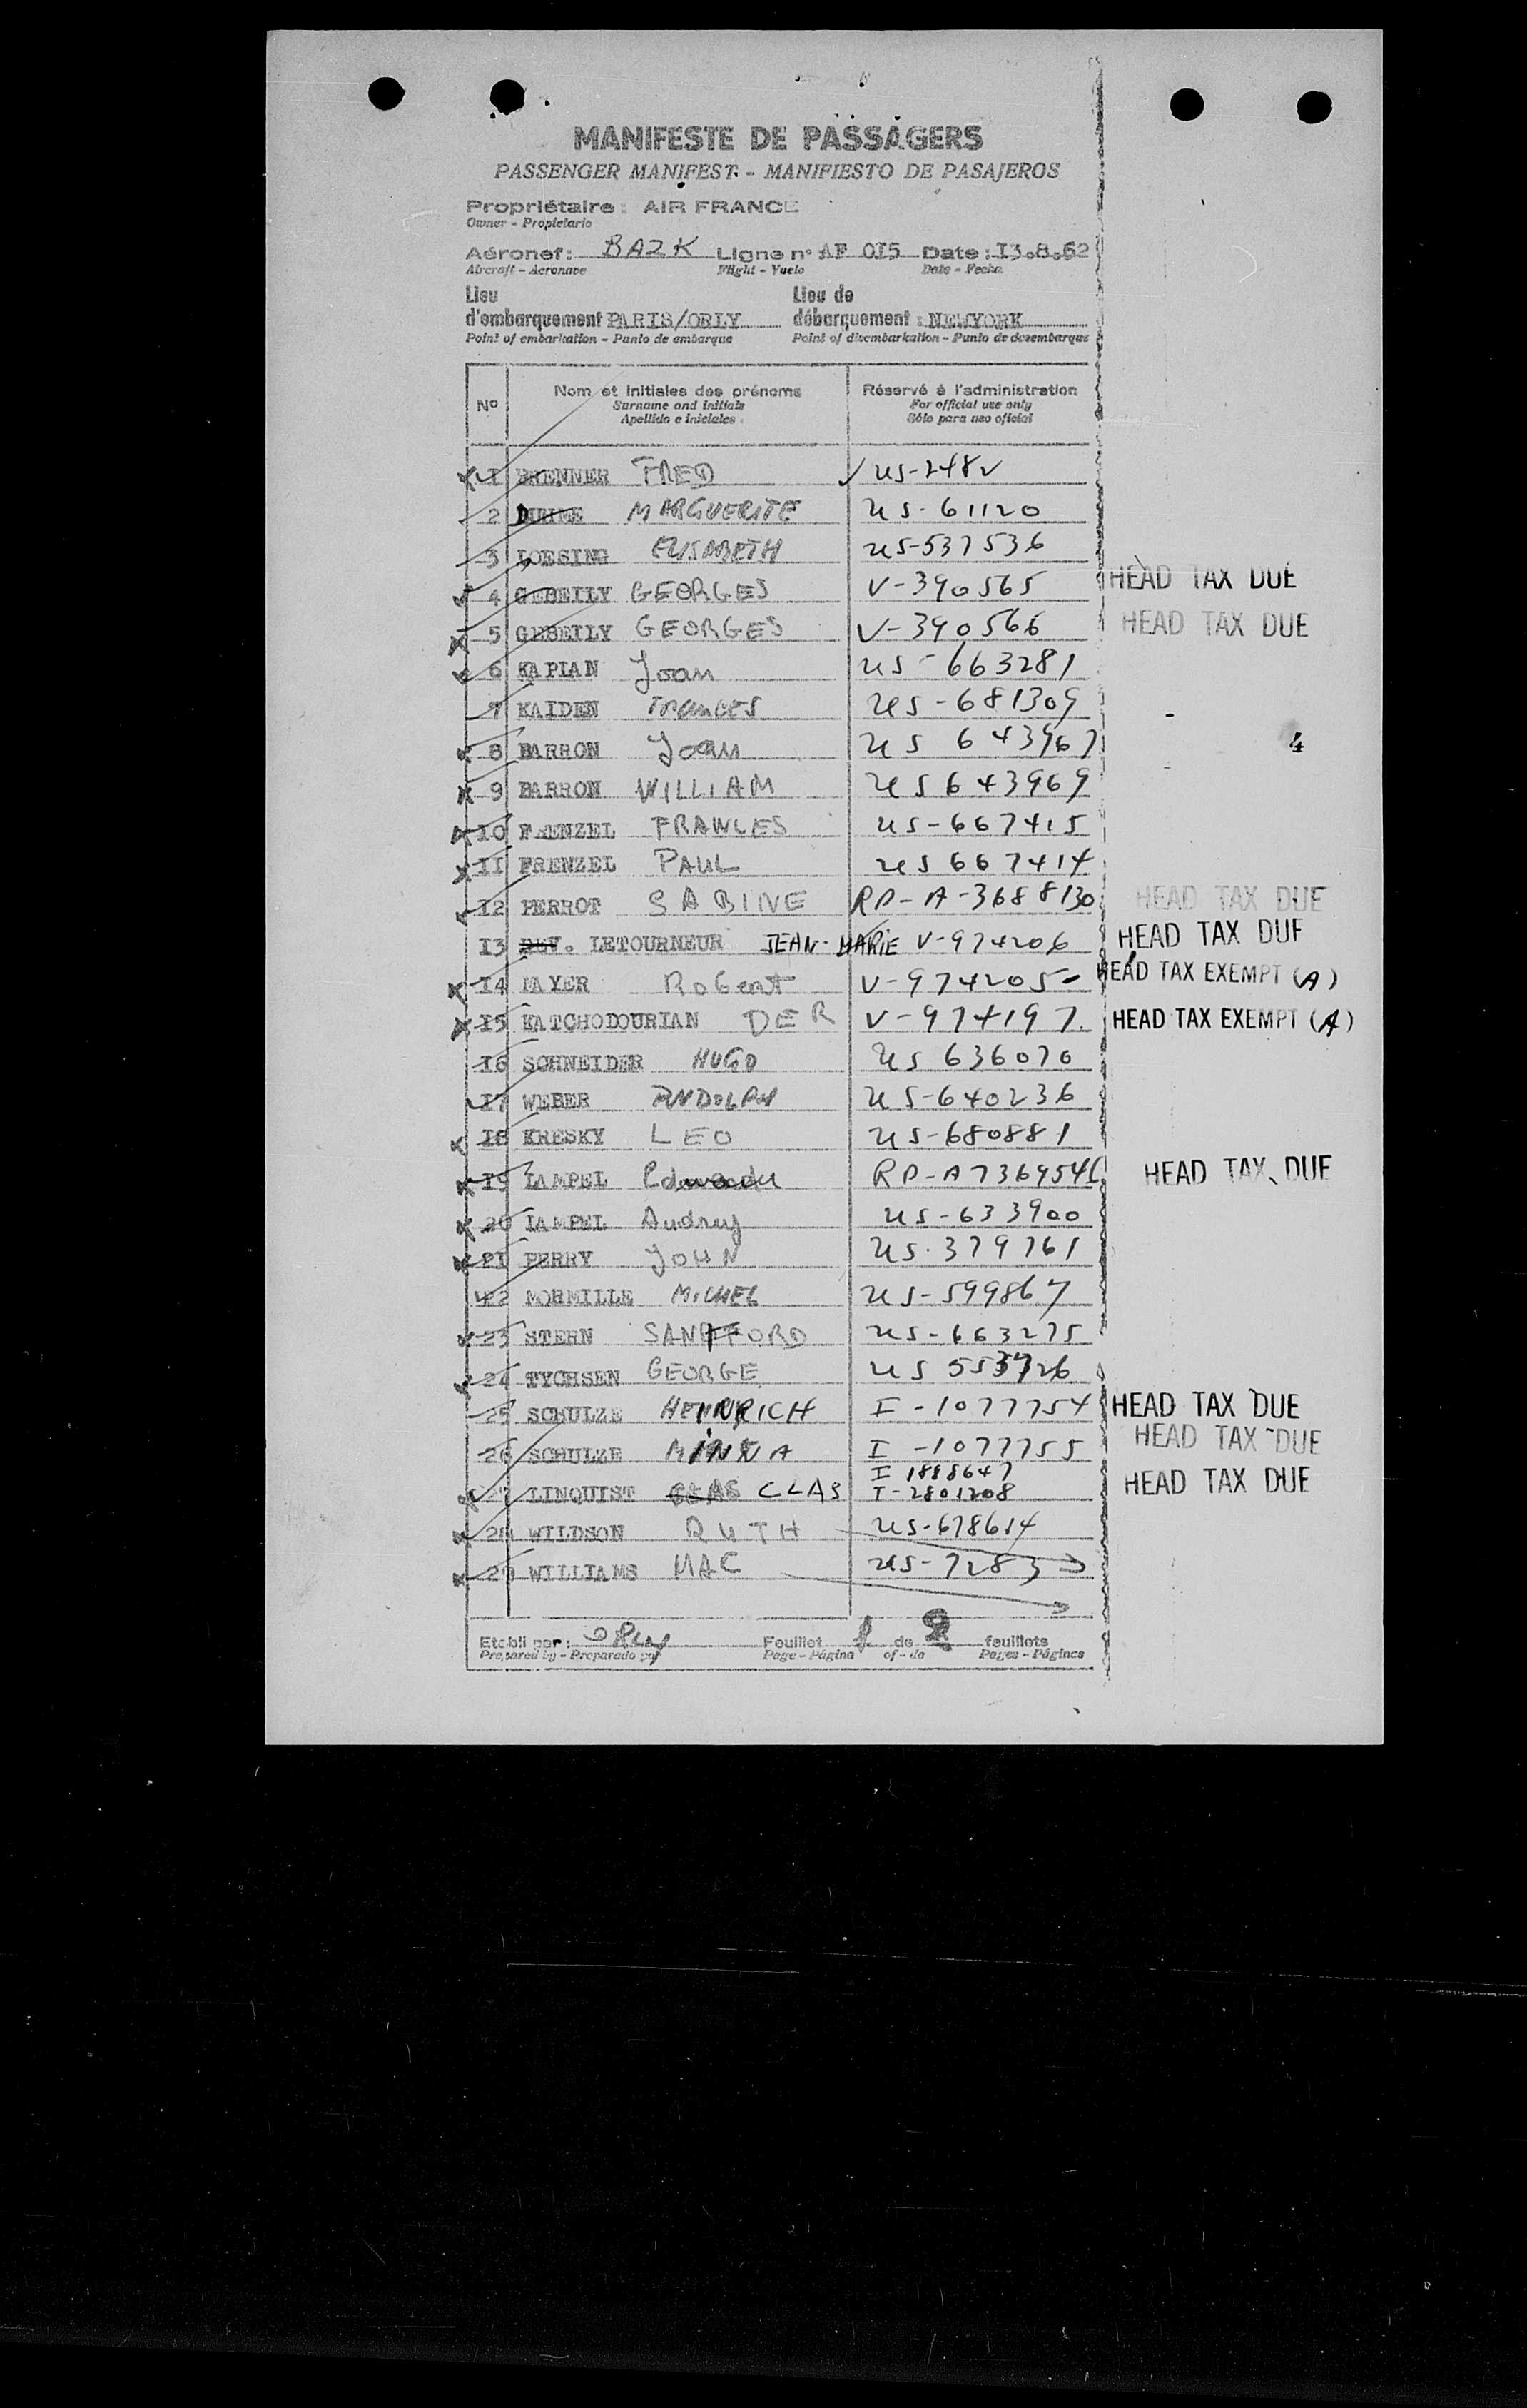 MANIFESTE DE PASSAGERS
PASSENGER MANIFEST - MANIFIESTO DE PASAJEROS
Propriétaire : AIR FRANCE
Owner - Propietario
Aéronef : BAZK Ligne n° AF 0I5 Date : I3.8.62
Aircraft - Aeronave Flight - Vuelo Date - Fecha
Lieu d'embarquement PARIS/ORLY Lieu de débarquement : NEWYORK
Point of embarkation - Punto de embarque Point of disembarkation - Punto de desembarque
N° Nom et initiales des prénoms Réservé à l'administration
Surname and initials For official use only
Apellido e iniciales Sólo para uso oficial
I BRENNER FRED US-2482
2 MARGUERITE US-61120
3 LOESING ELISABETH US-537536
4 GEBEILY GEORGES V-390565 HEAD TAX DUE
5 GEBEILY GEORGES V-390566 HEAD TAX DUE
6 KAPLAN Joan US-663281
7 KAIDEN FRANCES US-681309
8 BARRON Joan US 643967 4
9 BARRON WILLIAM US 643969
10 FRENZEL US-667415
II FRENZEL PAUL US 667414
I2 PERROT SABINE RP-A-3688130 HEAD TAX DUE
I3 DEV. LETOURNEUR JEAN-MARIE V-974206 HEAD TAX DUE
I4 MAYER Robert V-974205 HEAD TAX EXEMPT (A)
I5 KATCHODOURIAN DER V-974197 HEAD TAX EXEMPT (A)
I6 SCHNEIDER HUGO US 636070
I7 WEBER US-640236
I8 KRESKY LEO US-680881
I9 LAMPEL RP-A7369546 HEAD TAX DUE
20 LAMPEL Audrey US-633900
2I PERRY JOHN US-379761
22 NORMILLE MICHEL US-599867
23 STERN SANDFORD US-663275
24 TYCHSEN GEORGE US 553726
25 SCHULZE HEINRICH I-1077754 HEAD TAX DUE
26 SCHULZE MINNA I-1077755 HEAD TAX DUE
27 LINQUIST CLAS I 1888647 HEAD TAX DUE
I-2801208
28 WILDSON RUTH US-678614
29 WILLIAMS MAC US-7283
Etabli par : ORLY Feuillet 1 de 2 feuillets
Prepared by - Preparado por Page - Página of - de Pages - Páginas